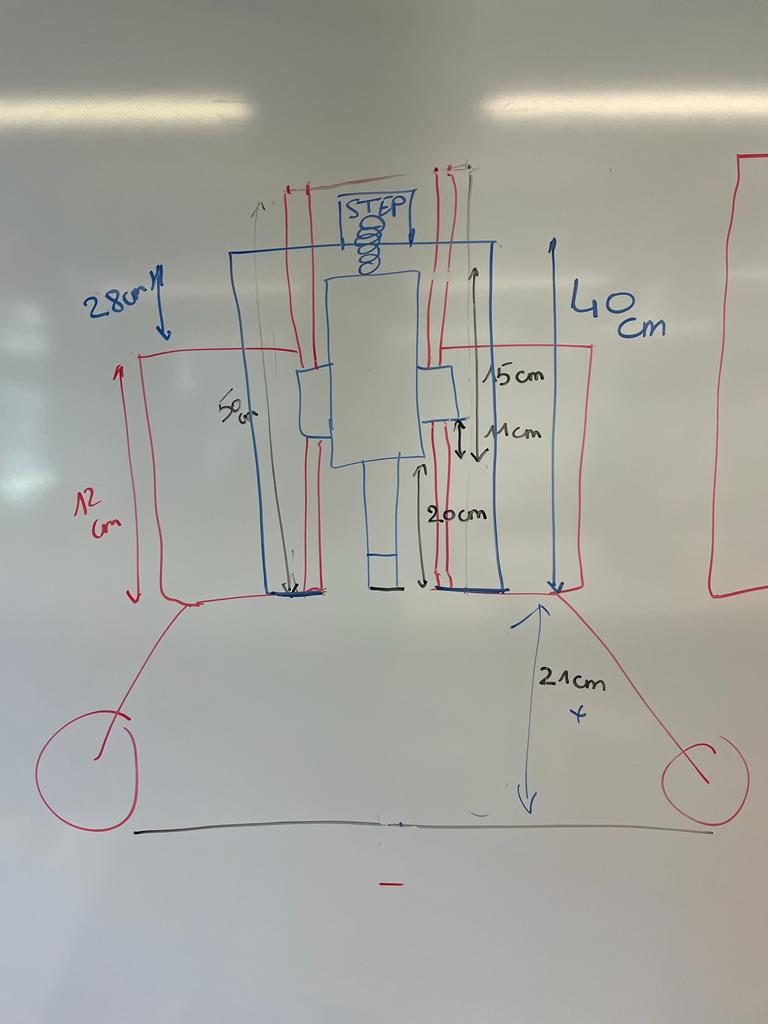 STEP
28cm
40
cm
15cm
50cm
11cm
12
cm
20cm
21cm